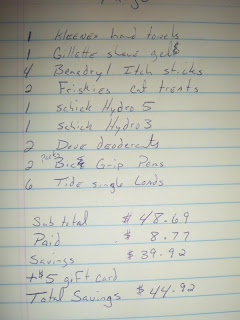 1 Kleenex hand towels
1 Gillette shave gels
4 Benadryl Itch sticks
2 Friskies cat treats
1 Schick Hydro 5
1 Schick Hydro 3
2 Dove deodorants
2 packs Bic Grip Pens
6 Tide single Loads
Sub total $48.69
Paid $8.77
Savings $39.92
+$5 gift card
Total Savings $44.92